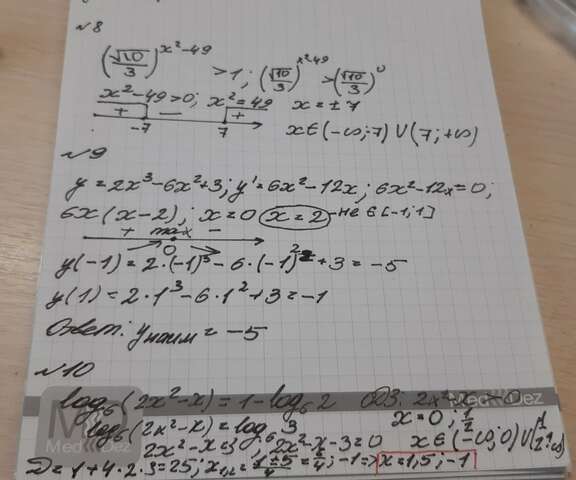 №8
(√10/3)^(x²-49) > 1; (√10/3)^(x²-49) > (√10/3)^0
x²-49>0; x²=49 x=±7
+ - +
-7 7 x∈(-∞;7)∪(7;+∞)
№9
y=2x³-6x²+3; y'=6x²-12x; 6x²-12x=0;
6x(x-2); x=0 x=2 -не ∈[-1;1]
+ max -
0
y(-1)=2·(-1)³-6·(-1)²+3=-5
y(1)=2·1³-6·1²+3=-1
Ответ: yнаим=-5
№10
log₆(2x²-x)=1-log₆2 ОДЗ: 2x²-x>0
x=0; 1/2
log₆(2x²-x)=log₆3
2x²-x=3; 2x²-x-3=0 x∈(-∞;0)∪(1/2;+∞)
D=1+4·2·3=25; x₁,₂=(1±5)/4=6/4; -1 => x=1,5; -1
MedDez
MedDez